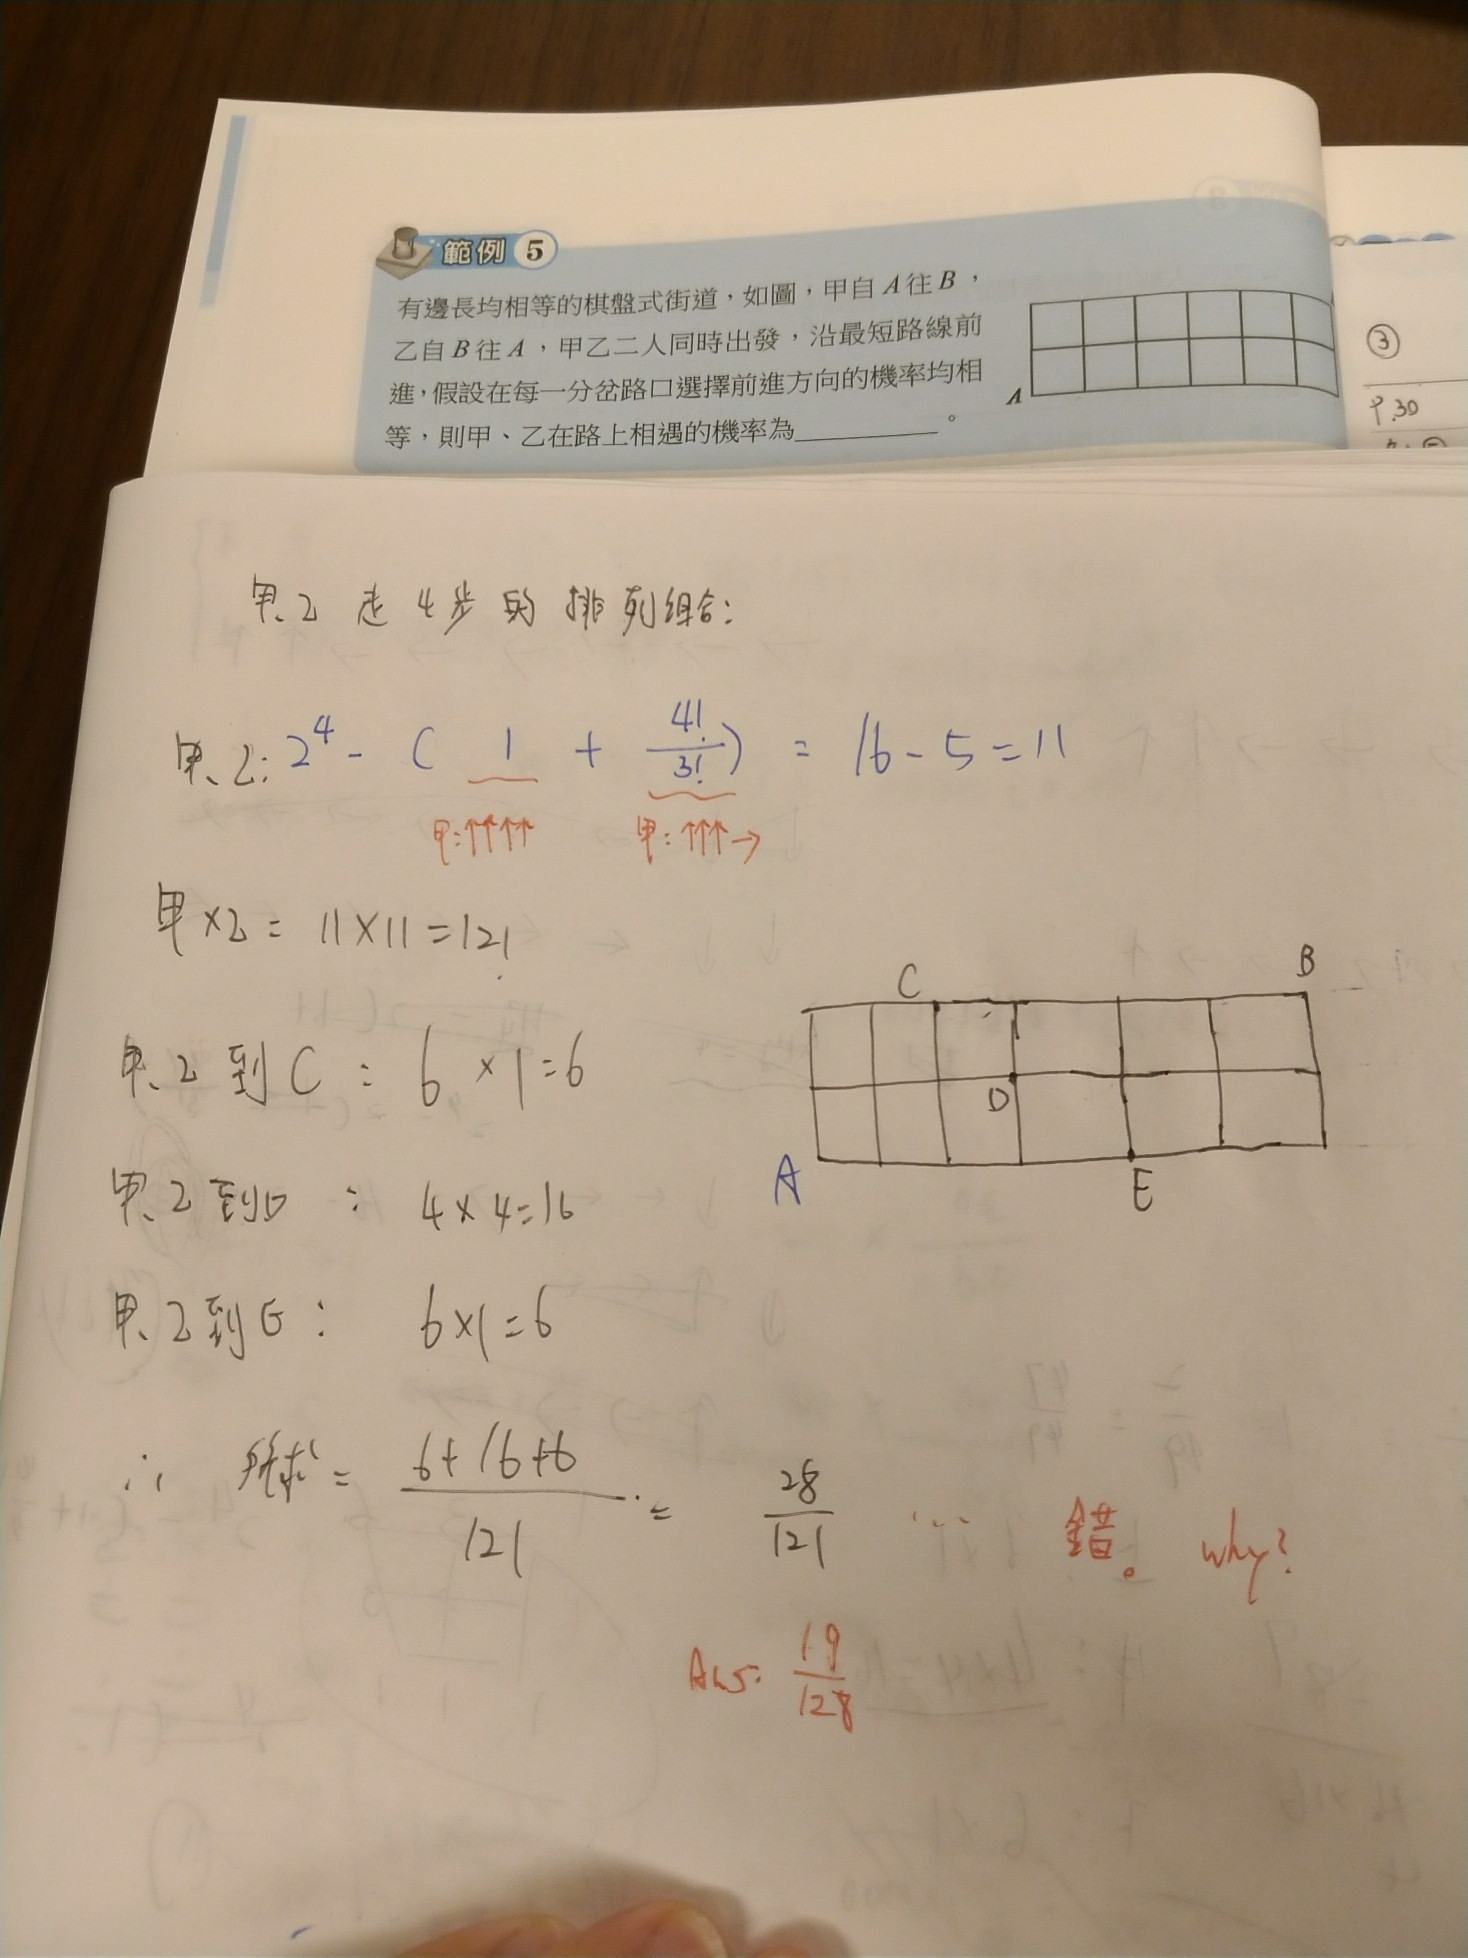 範例 5
有邊長均相等的棋盤式街道，如圖，甲自 A 往 B，
乙自 B 往 A，甲乙二人同時出發，沿最短路線前
進，假設在每一分岔路口選擇前進方向的機率均相
等，則甲、乙在路上相遇的機率為＿＿＿＿。
A
③
P.30
甲.乙 走 4步 的 排列組合:
甲、乙: 2⁴ - ( 1 + 4!/3! ) = 16 - 5 = 11
甲:↑↑↑↑ 甲:↑↑↑→
甲×乙 = 11×11 = 121
甲.乙到C : 6 ×1=6
甲.乙到D : 4×4=16
甲.乙到E : 6×1=6
C B
D
A E
∴ 所求 = (6+16+6)/121 = 28/121 … 錯。 why?
Ans: 19/128